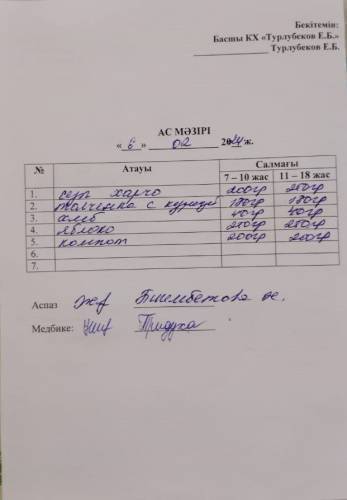 Бекітемін:
Басшы КХ «Турлубеков Е.Б.»
Турлубеков Е.Б.
АС МӘЗІРІ
« 6 » 02 2024 ж.
№ Атауы Салмағы
7 – 10 жас 11 – 18 жас
1. суп харчо 200гр 250гр
2. толченка с курицей 180гр 180гр
3. хлеб 40гр 40гр
4. яблоко 250гр 250гр
5. компот 200гр 200гр
6.
7.
Аспаз
Медбике: